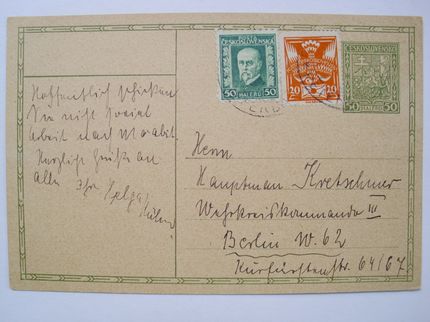 POŠTA
ČESKOSLOVENSKÁ
50 HALÉŘŮ 50
20 20
ČESKOSLOVENSKO
50 HALÉŘŮ 50
Hoffentlich schicken
Sie nicht soviel
Arbeit nach Moabit.
Herzliche Grüße an
alle Ihr Helga
Herrn
Hauptmann Kretschmer
Wehrkreiskommando III
Berlin W. 62
Kurfürstenstr. 64/67